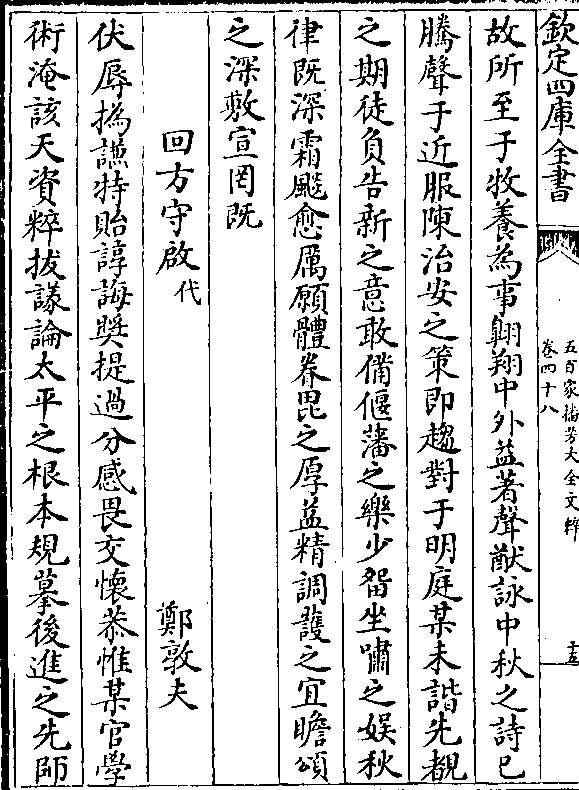 欽定四庫全書
五百家播芳大全文粹
卷四十八
十五
故所至于牧養為事翺翔中外益著聲猷詠中秋之詩已
騰聲于近服陳治安之策即趨對于明庭某未諧先覩
之期徒負告新之意敢備偃藩之樂少留坐嘯之娛秋
律既深霜飈愈厲願體眷毘之厚益精調護之宜瞻頌
之深敷宣罔既
回方守啟代
鄭敦夫
伏辱撝謙特貽諄誨奬提過分感畏交懷恭惟某官學
術淹該天資粹拔議論太平之根本規摹後進之先師